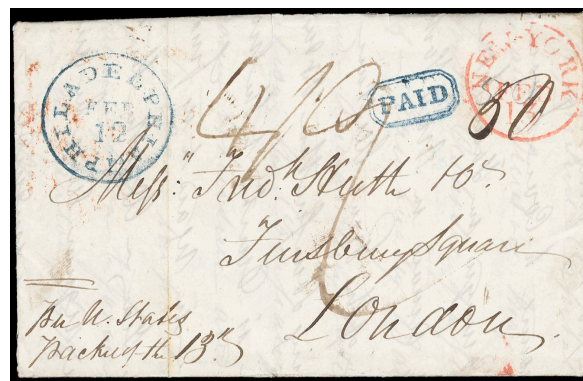 PHILADELPHIA
FEB
12
PAID
NEW-YORK
FEB
50
Mess:rs Fredk Huth &Co
Finsbury Square
London.
Per U. States
Packet of the 13th